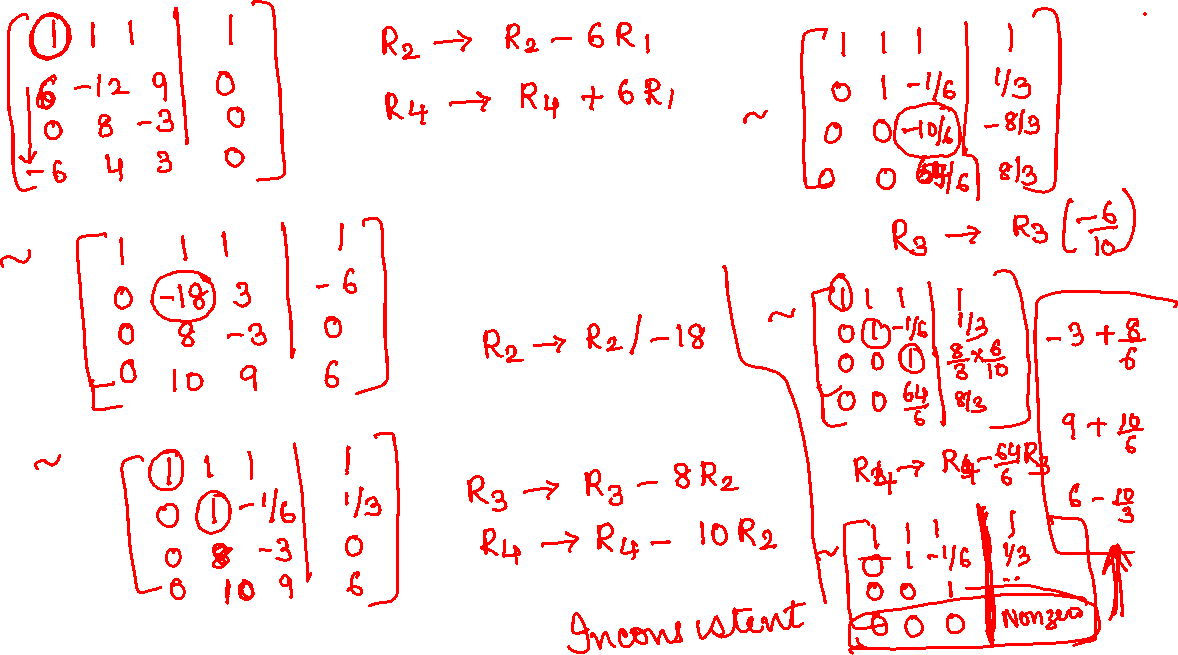 1 1 1 | 1
6 -12 9 | 0
0 8 -3 | 0
-6 4 3 | 0
R2 → R2 - 6R1
R4 → R4 + 6R1
~ 1 1 1 | 1
0 -18 3 | -6
0 8 -3 | 0
0 10 9 | 6
R2 → R2/-18
~ 1 1 1 | 1
0 1 -1/6 | 1/3
0 8 -3 | 0
0 10 9 | 6
R3 → R3 - 8R2
R4 → R4 - 10R2
~ 1 1 1 | 1
0 1 -1/6 | 1/3
0 0 -10/6 | -8/3
0 0 64/6 | 8/3
R3 → R3 (-6/10)
~ 1 1 1 | 1
0 1 -1/6 | 1/3
0 0 1 | 8/3 × 6/10
0 0 64/6 | 8/3
R4 → R4 - 64/6 R3
-3 + 8/6
9 + 10/6
6 - 10/3
~ 1 1 1 | 1
0 1 -1/6 | 1/3
0 0 1 | ..
0 0 0 | Nonzero
Inconsistent